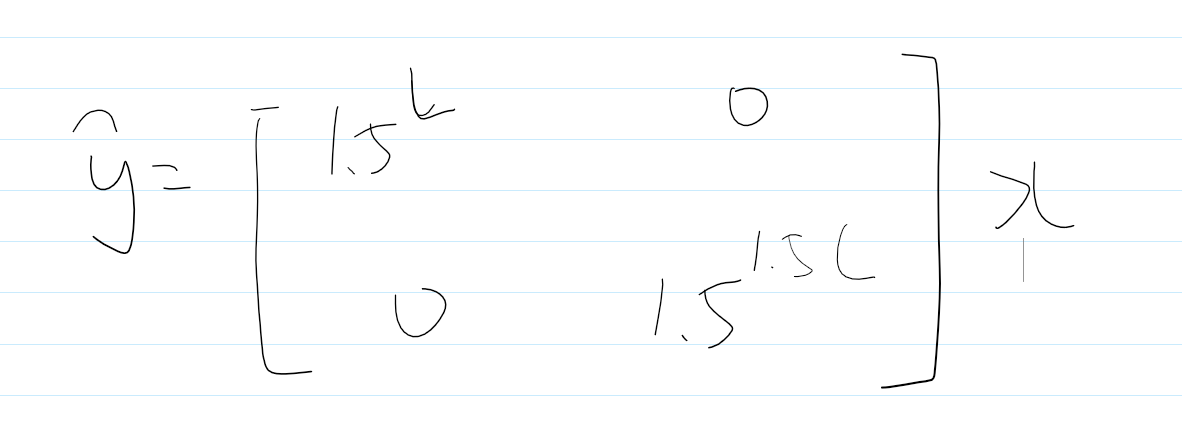 ŷ = [ 1.5^L 0
0 1.5^1.5L ] x